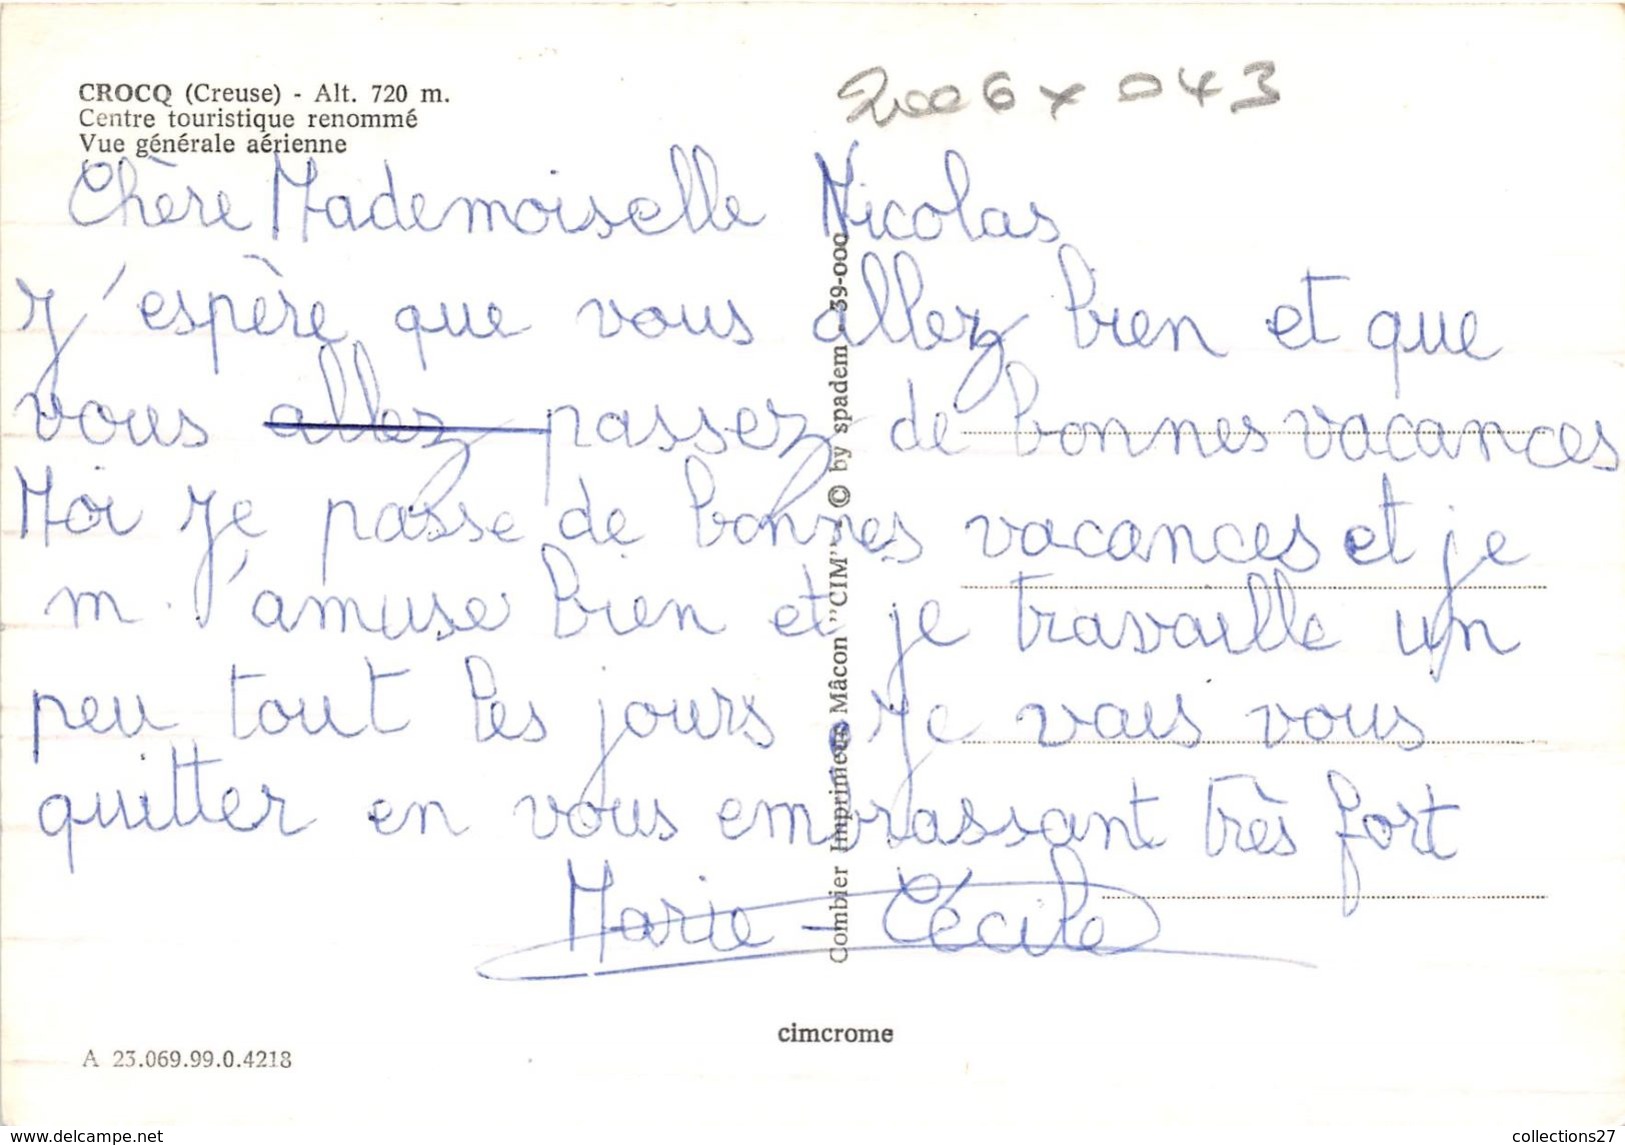 CROCQ (Creuse) - Alt. 720 m.
Centre touristique renommé
Vue générale aérienne
2006 x 043
Chère Mademoiselle Nicolas
J'espère que vous allez bien et que
vous allez passez de bonnes vacances
Moi Je passe de bonnes vacances et je
m'amuse bien et je travaille un
peu tout les jours. Je vais vous
quitter en vous embrassant très fort
Marie-Cécile
Combier Imprimeur Mâcon "CIM" - © by spadem - 39-000
cimcrome
A 23.069.99.0.4218
www.delcampe.net
collections27